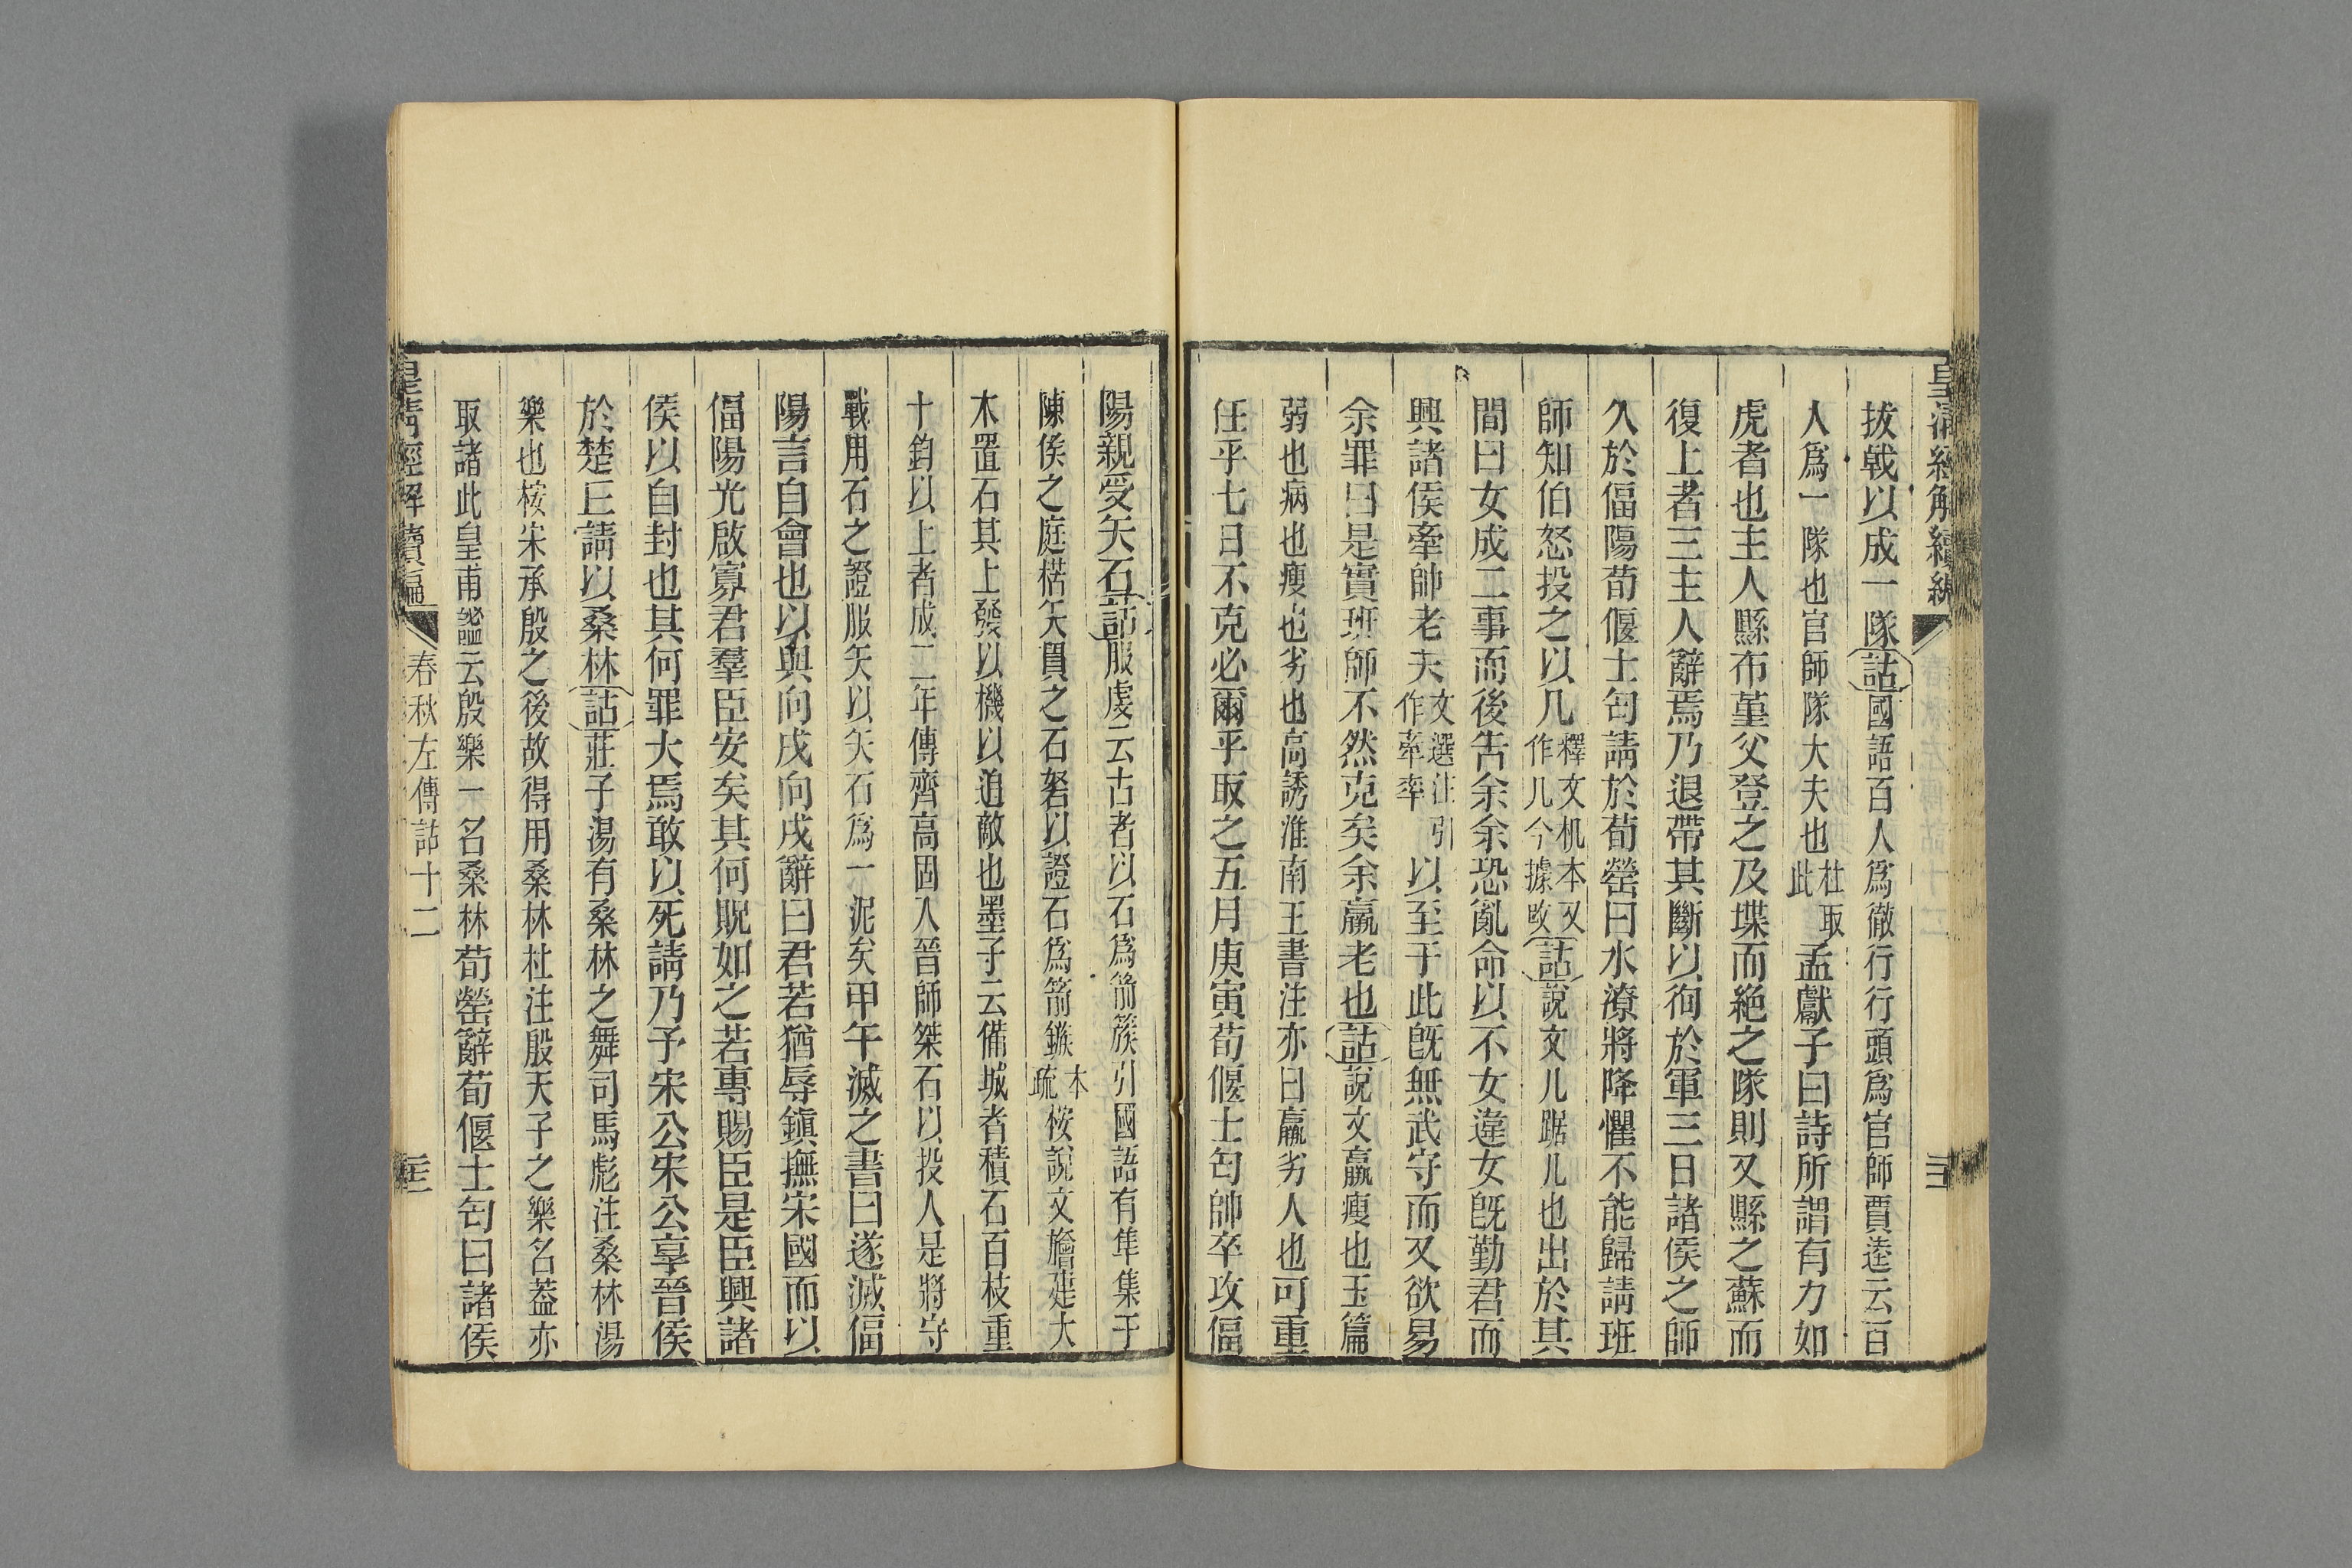 皇清經解續編
拔戟以成一隊詁國語百人爲徹行行頭爲官師賈逵云百
人爲一隊也官師隊大夫也杜取此孟獻子曰詩所謂有力如
虎者也主人縣布堇父登之及堞而絶之隊則又縣之蘇而
復上者三主人辭焉乃退帶其斷以徇於軍三日諸侯之師
久於偪陽荀偃士匄請於荀罃曰水潦將降懼不能歸請班
師知伯怒投之以几釋文机本又作几今據改詁說文几踞几也出於其
間曰女成二事而後告余余恐亂命以不女違女旣勤君而
興諸侯牽帥老夫文選注引作牽率以至于此旣無武守而又欲易
余罪曰是實班師不然克矣余羸老也詁說文羸瘦也玉篇
弱也病也瘦也劣也高誘淮南王書注亦曰羸劣人也可重
任乎七日不克必爾乎取之五月庚寅荀偃士匄帥卒攻偪
陽親受矢石詁服虔云古者以石爲箭簇引國語有隼集于
陳侯之庭楛矢貫之石砮以證石爲箭鏃本疏桉說文旝建大
木置石其上發以機以追敵也墨子云備城者積石百枝重
十鈞以上者成二年傳齊高固入晉師桀石以投人是將守
戰用石之證服矢以矢石爲一泥矣甲午滅之書曰遂滅偪
陽言自會也以與向戌向戌辭曰君若猶辱鎭撫宋國而以
偪陽光啟寡君羣臣安矣其何貺如之若專賜臣是臣興諸
侯以自封也其何罪大焉敢以死請乃予宋公宋公享晉侯
於楚丘請以桑林詁莊子湯有桑林之舞司馬彪注桑林湯
樂也桉宋承殷之後故得用桑林杜注殷天子之樂名葢亦
取諸此皇甫謐云殷樂一名桑林荀罃辭荀偃士匄曰諸侯
皇淸經解續編
春秋左傳詁十二